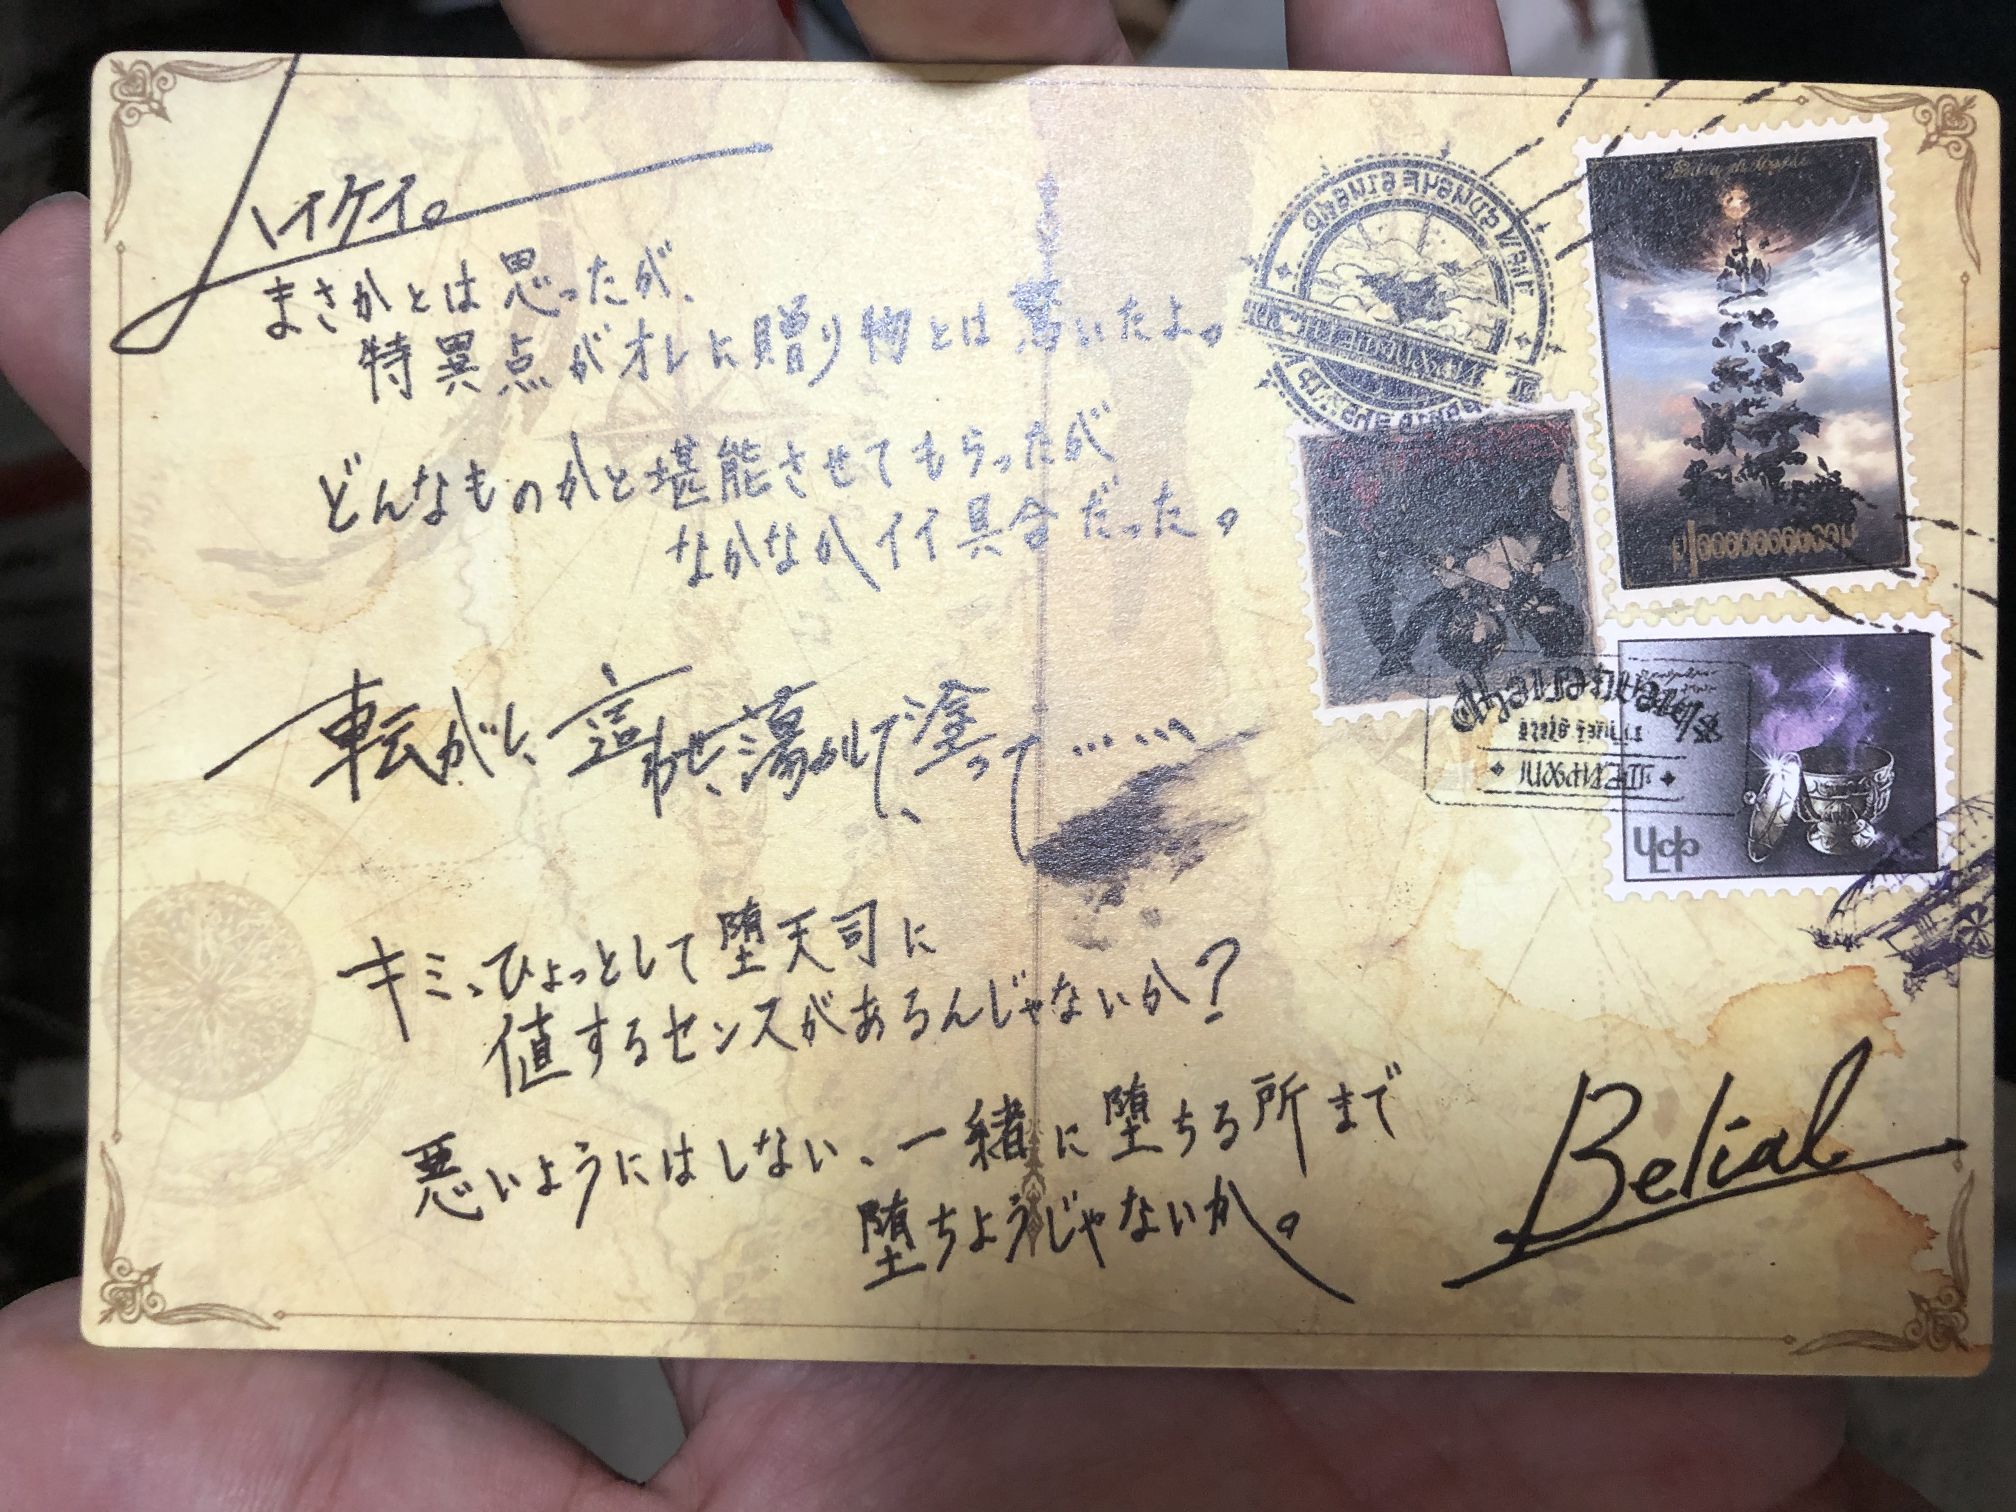 ハイケイ。
まさかとは思ったが、
特異点がオレに贈り物とは驚いたよ。
どんなものかと堪能させてもらったが
なかなかイイ具合だった。
転がし、這わせ、蕩かして、塗って……
キミ、ひょっとして堕天司に
値するセンスがあるんじゃないか?
悪いようにはしない、一緒に堕ちる所まで
堕ちようじゃないか。
Belial